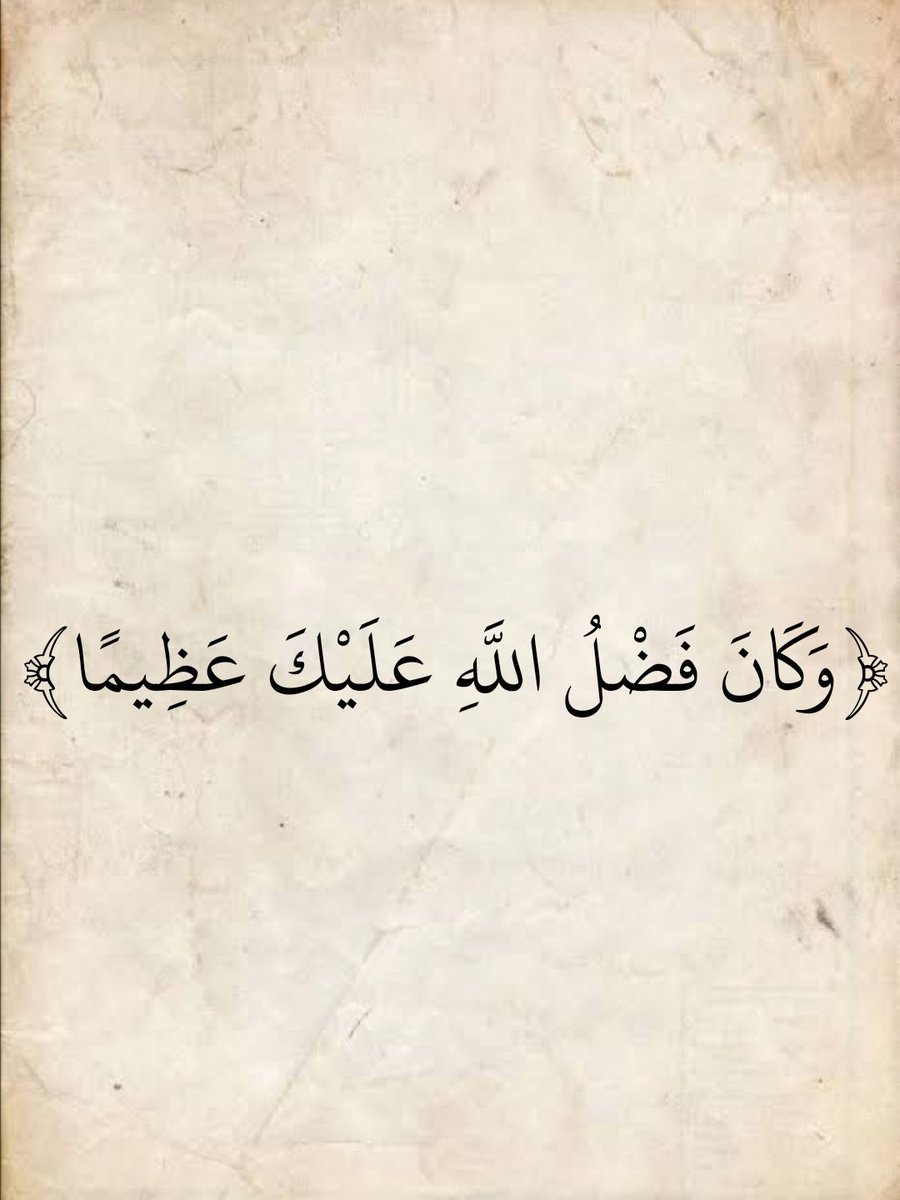 ﴿وَكَانَ فَضْلُ اللَّهِ عَلَيْكَ عَظِيمًا﴾